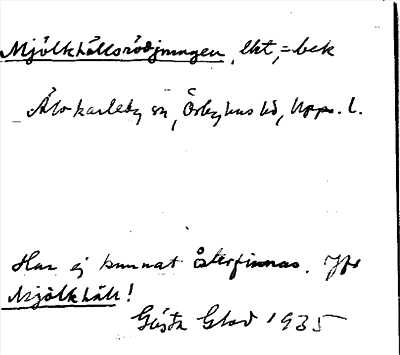 Mjölkhällsrödjningen, lkt, = bek
Älvkarleby sn, Örbyhus hd, Upps. l.
Har ej kunnat återfinnas. Jfr
Mjölkhäll!
Gösta Glad 1935